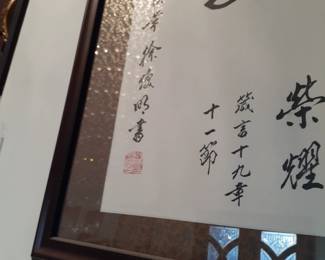 榮耀
箴言十九章
十一節
徐俊明書